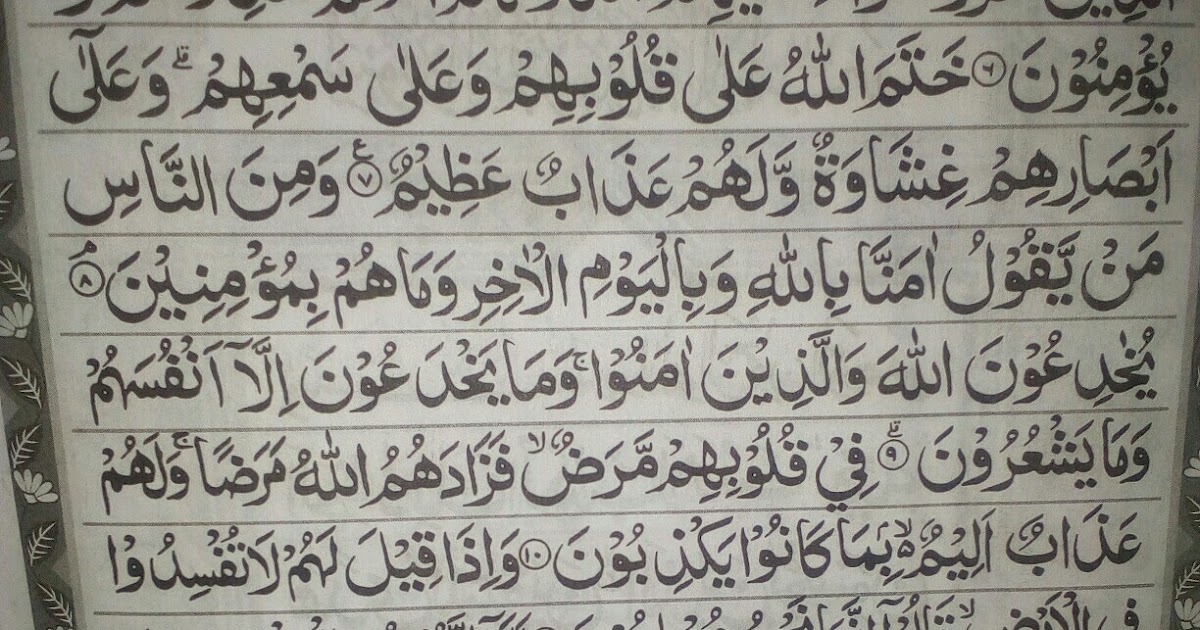 يُؤْمِنُوْنَ ۝۶ خَتَمَ اللّٰهُ عَلٰى قُلُوْبِهِمْ وَعَلٰى سَمْعِهِمْ ؕ وَعَلٰٓى
اَبْصَارِهِمْ غِشَاوَةٌ وَّلَهُمْ عَذَابٌ عَظِيْمٌ ۝۷ وَمِنَ النَّاسِ
مَنْ يَّقُوْلُ اٰمَنَّا بِاللّٰهِ وَبِالْيَوْمِ الْاٰخِرِ وَمَا هُمْ بِمُؤْمِنِيْنَ ۝۸
يُخٰدِعُوْنَ اللّٰهَ وَالَّذِيْنَ اٰمَنُوْا ۚ وَمَا يَخْدَعُوْنَ اِلَّآ اَنْفُسَهُمْ
وَمَا يَشْعُرُوْنَ ۝۹ فِيْ قُلُوْبِهِمْ مَّرَضٌ ۙ فَزَادَهُمُ اللّٰهُ مَرَضًا ۚ وَلَهُمْ
عَذَابٌ اَلِيْمٌ ۢ ۙ بِمَا كَانُوْا يَكْذِبُوْنَ ۝۱۰ وَاِذَا قِيْلَ لَهُمْ لَا تُفْسِدُوْا